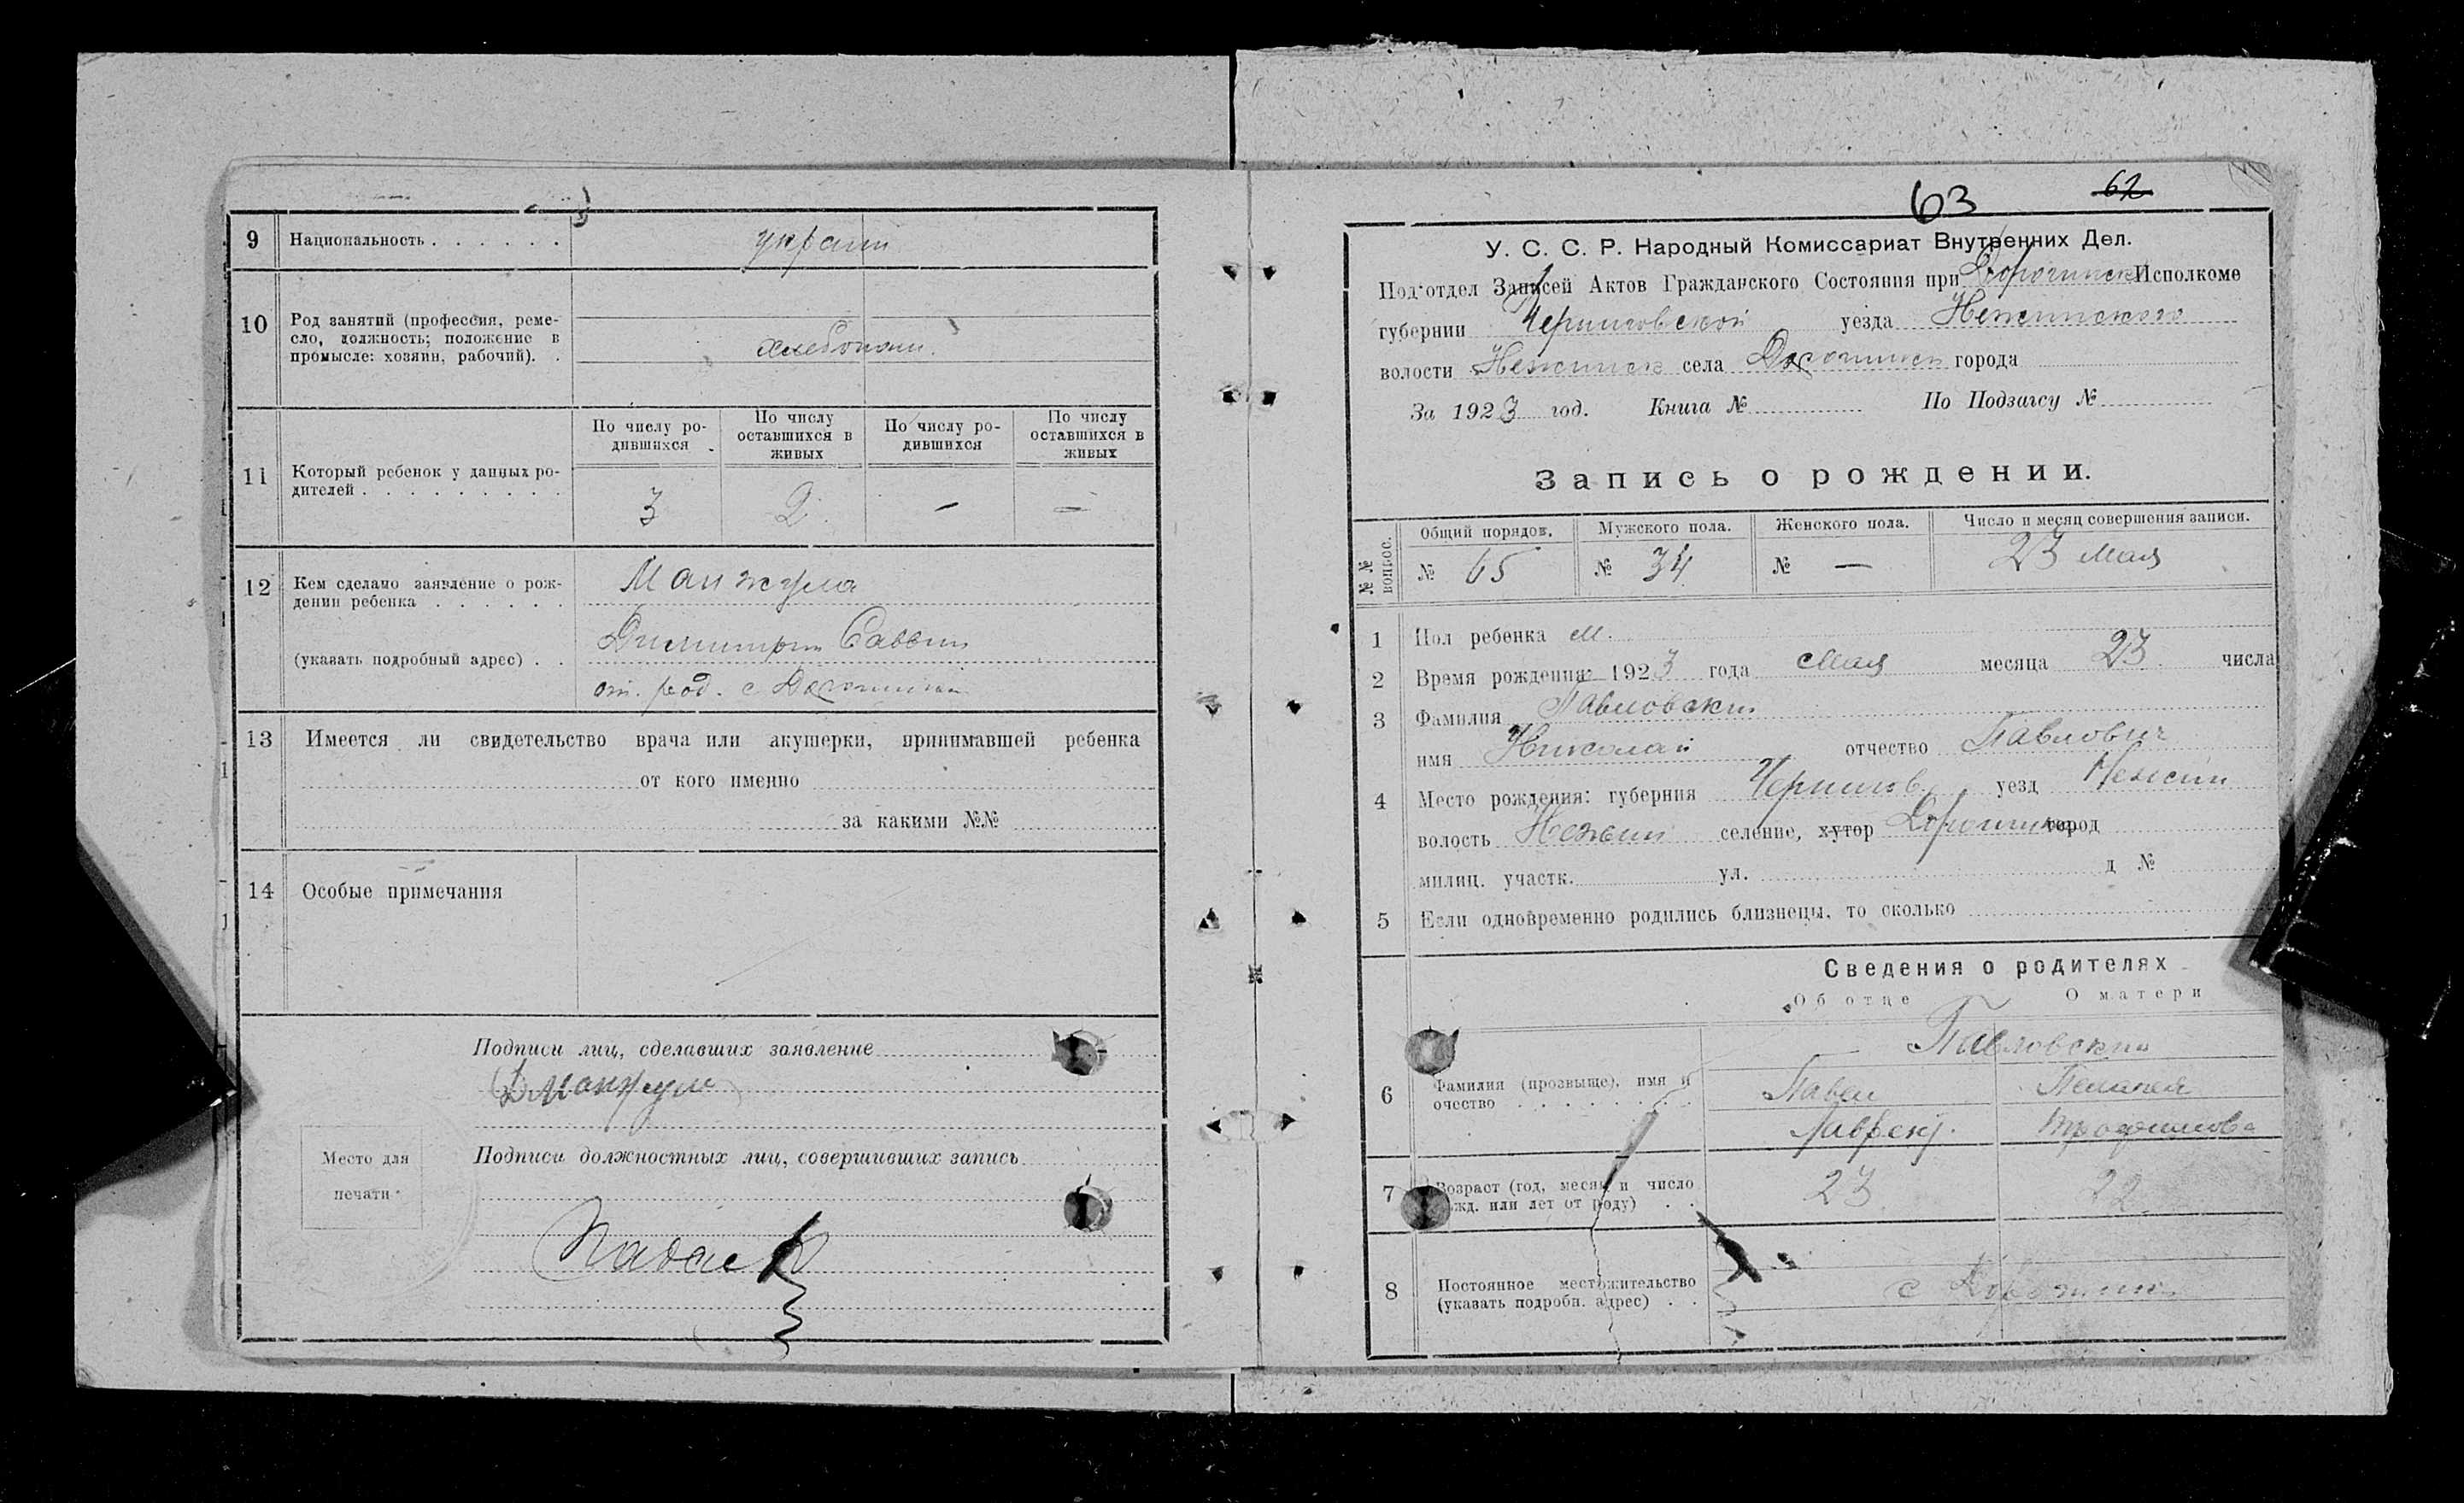 9 Национальность . . . . . .
украин
10 Род занятий (профессия, реме-
сло, должность; положение в
промысле: хозяин, рабочий). .
хлебопаш.
11 Который ребенок у данных ро-
дителей . . . . . . . . .
По числу ро-
дившихся
По числу
оставшихся в
живых
По числу ро-
дившихся
По числу
оставшихся в
живых
3 2 — —
12 Кем сделано заявление о рож-
дении ребенка . . . . . .
(указать подробный адрес) . .
Манжула
Дмитрий Саввин
с
13 Имеется ли свидетельство врача или акушерки, принимавшей ребенка
от кого именно
за какими №№
14 Особые примечания
Подписи лиц, сделавших заявление
Д Манжула
Подписи должностных лиц, совершивших запись
Место для
печати
63 62
У. С. С. Р. Народный Комиссариат Внутренних Дел.
Под'отдел Записей Актов Гражданского Состояния при Дорогинск Исполкоме
губернии Черниговской уезда Нежинского
волости Нежинск села Дорогинск города
За 1923 год. Книга № По Подзагсу №
Запись о рождении.
№№ вопрос.
Общий порядов. Мужского пола. Женского пола. Число и месяц совершения записи.
№ 65 № 34 № — 23 мая
1 Пол ребенка м.
2 Время рождения: 1923 года мая месяца 23 числа
3 Фамилия Павловский
имя Николай отчество Павлович
4 Место рождения: губерния Чернигов. уезд Нежин
волость Нежин селение, хутор Дорогинка город
милиц. участк. ул. д №
5 Если одновременно родились близнецы, то сколько
Сведения о родителях
Об отце О матери
6 Фамилия (прозвыще), имя и
очество . . . . . . . .
Павловский
Павел Пелагея
Лаврент. Трофимова
7 Возраст (год, месяц и число
рожд. или лет от роду) . .
23 22
8 Постоянное местожительство
(указать подробн. адрес) . .
с Дорогинка